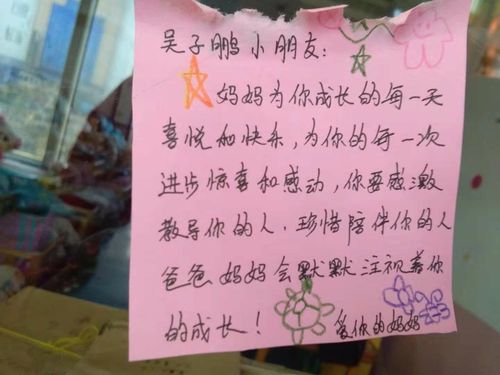 吴子鹏小朋友：
妈妈为你成长的每一天
喜悦和快乐，为你的每一次
进步惊喜和感动，你要感激
教导你的人，珍惜陪伴你的人
爸爸妈妈会默默注视着你
的成长！
爱你的妈妈